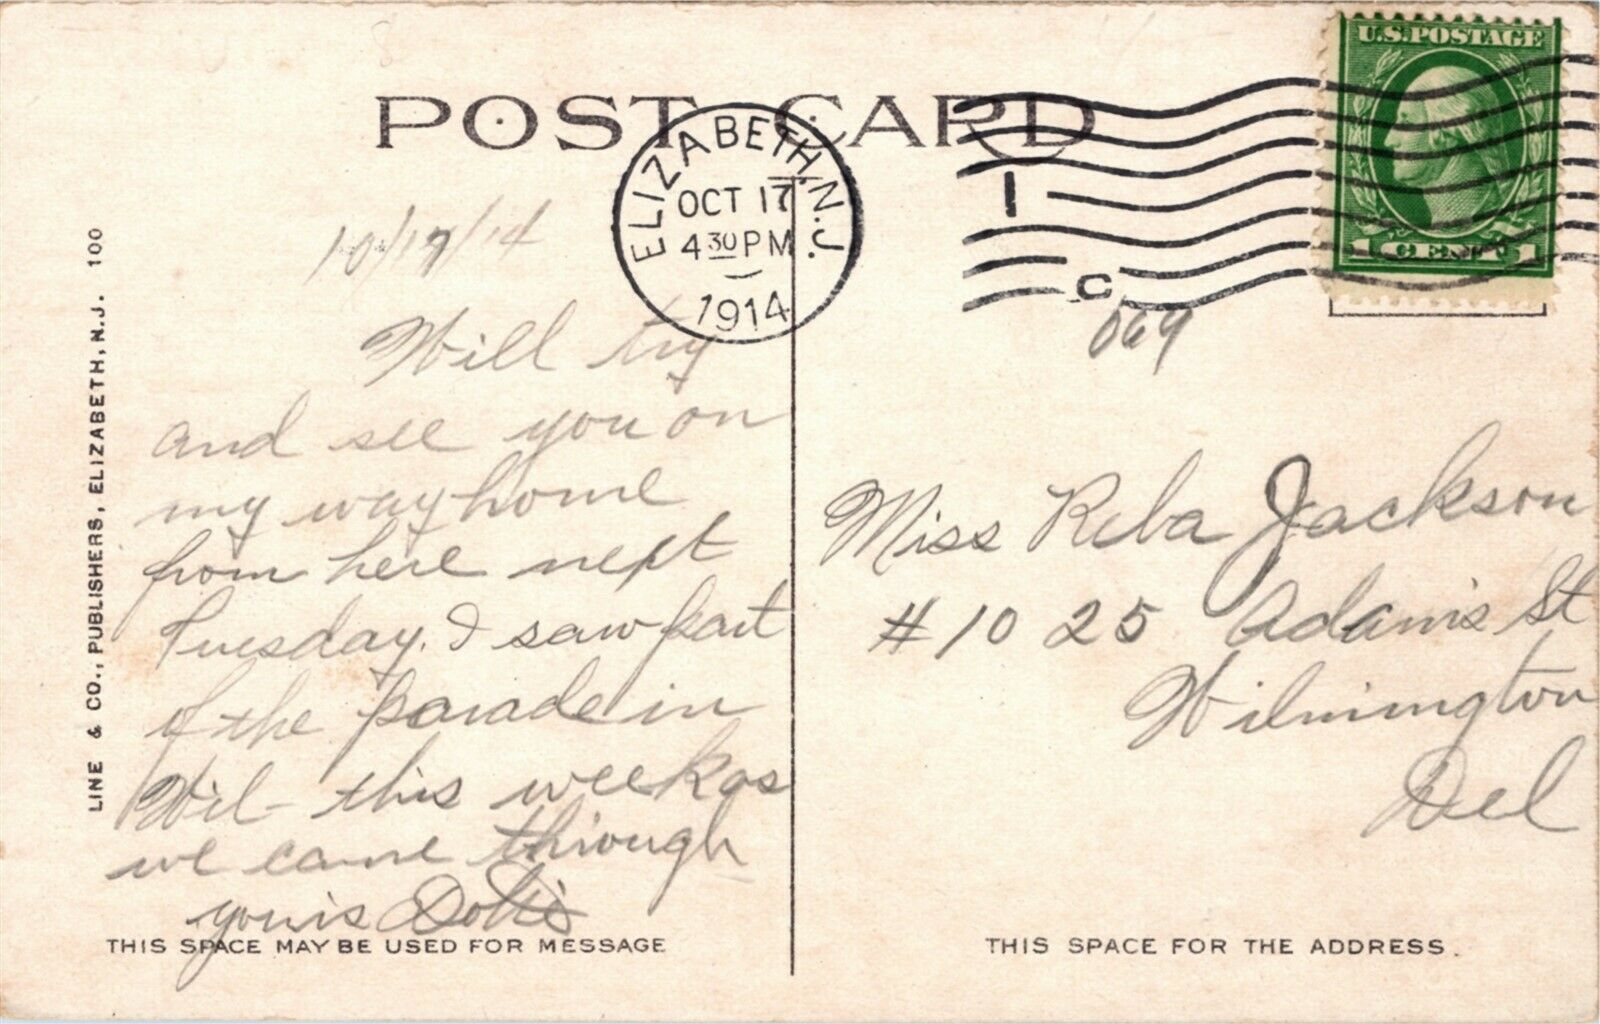 POST CARD
U.S. POSTAGE
1 CENT 1
ELIZABETH, N.J.
OCT 17
4 30 PM
1914
1
C
069
LINE & CO., PUBLISHERS, ELIZABETH, N.J. 100
10/17/14
Will try
and see you on
my way home
from here next
Tuesday. I saw part
of the parade in
Wil - this week as
we came through
yours
THIS SPACE MAY BE USED FOR MESSAGE
Miss Reba Jackson
#1025 Adams St
Wilmington
Del
THIS SPACE FOR THE ADDRESS.